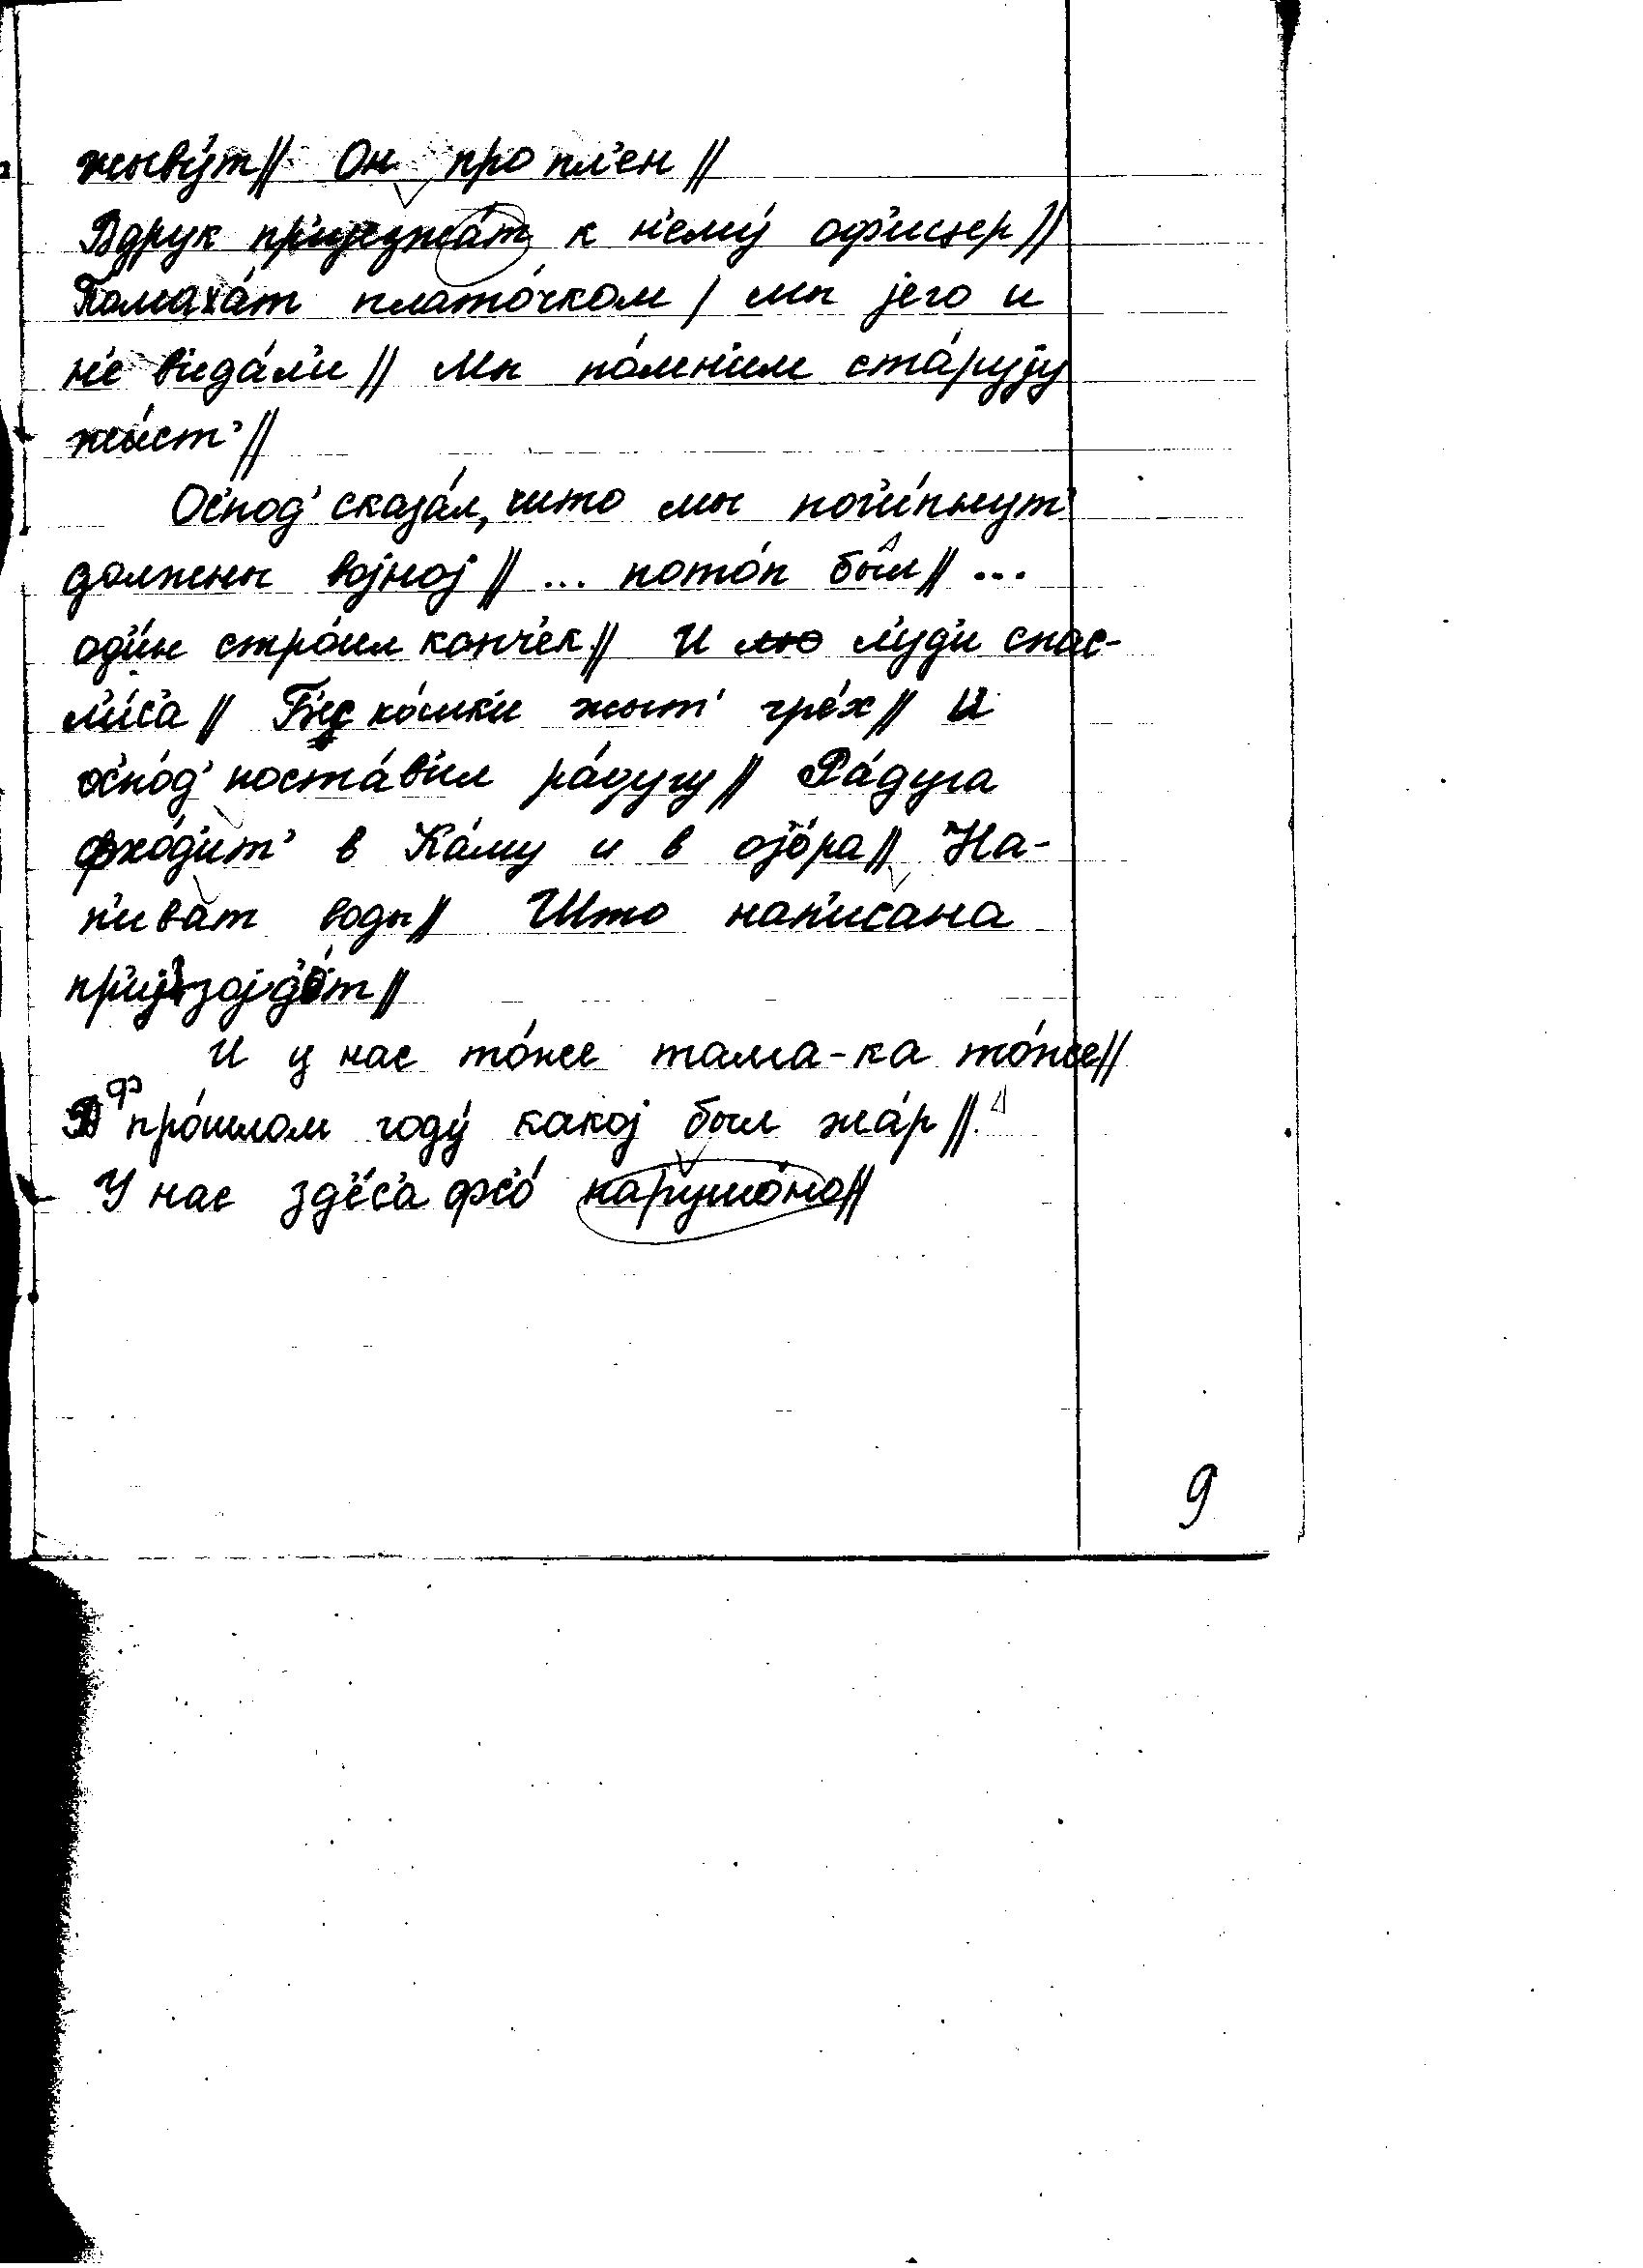 жывýт// Он про пл'ен//
Вдрук пр'ијезжáт к н'емý оф'ицер//
Помахáт платóчком / мы јего и
н'е в'идáл'и// Мы пóмн'им стáрују
жы́ст'//
Ос'под' сказáл, што мы пог'и́пнут'
должны војној// ... потóп был// ...
од'и́н стрóил копч'ек// И л'уд'и спас-
л'и́с'а// Б'ес кóшк'и жыт' грéх// И
ос'пóд' постáв'ил рáдугу// Рáдуга
фхóд'ит' в Кáму и в оз'óра// На-
п'ивáт воды// Што нап'исана
пр'ијзојд'óт//
И у нас тóже тама-ка тóже//
Ф прóшлом годý какој был жáр//
У нас зд'éс'а фс'ó нарушóно//
9